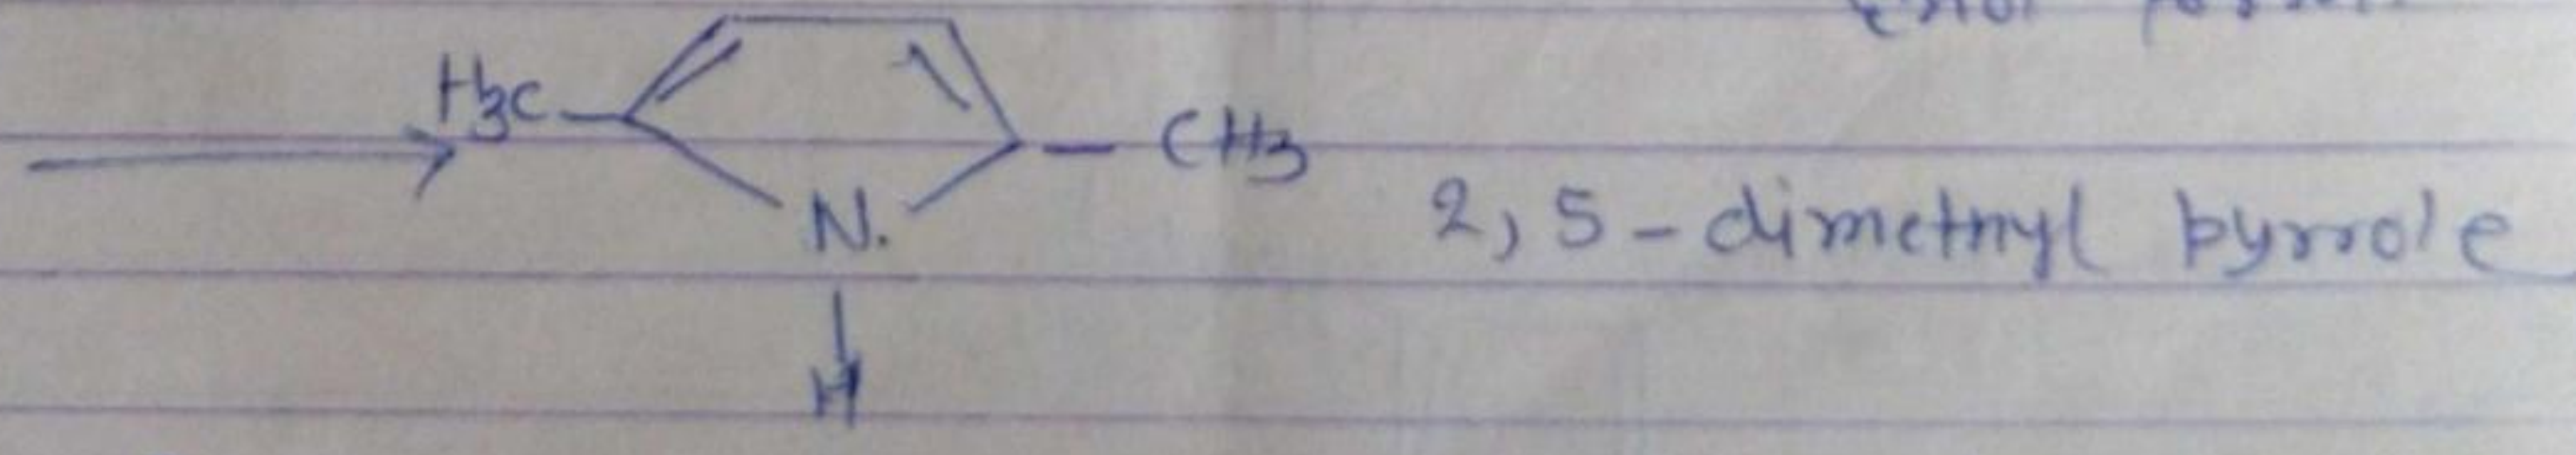 H3C
CH3
N.
2, 5 - dimethyl pyrrole
H